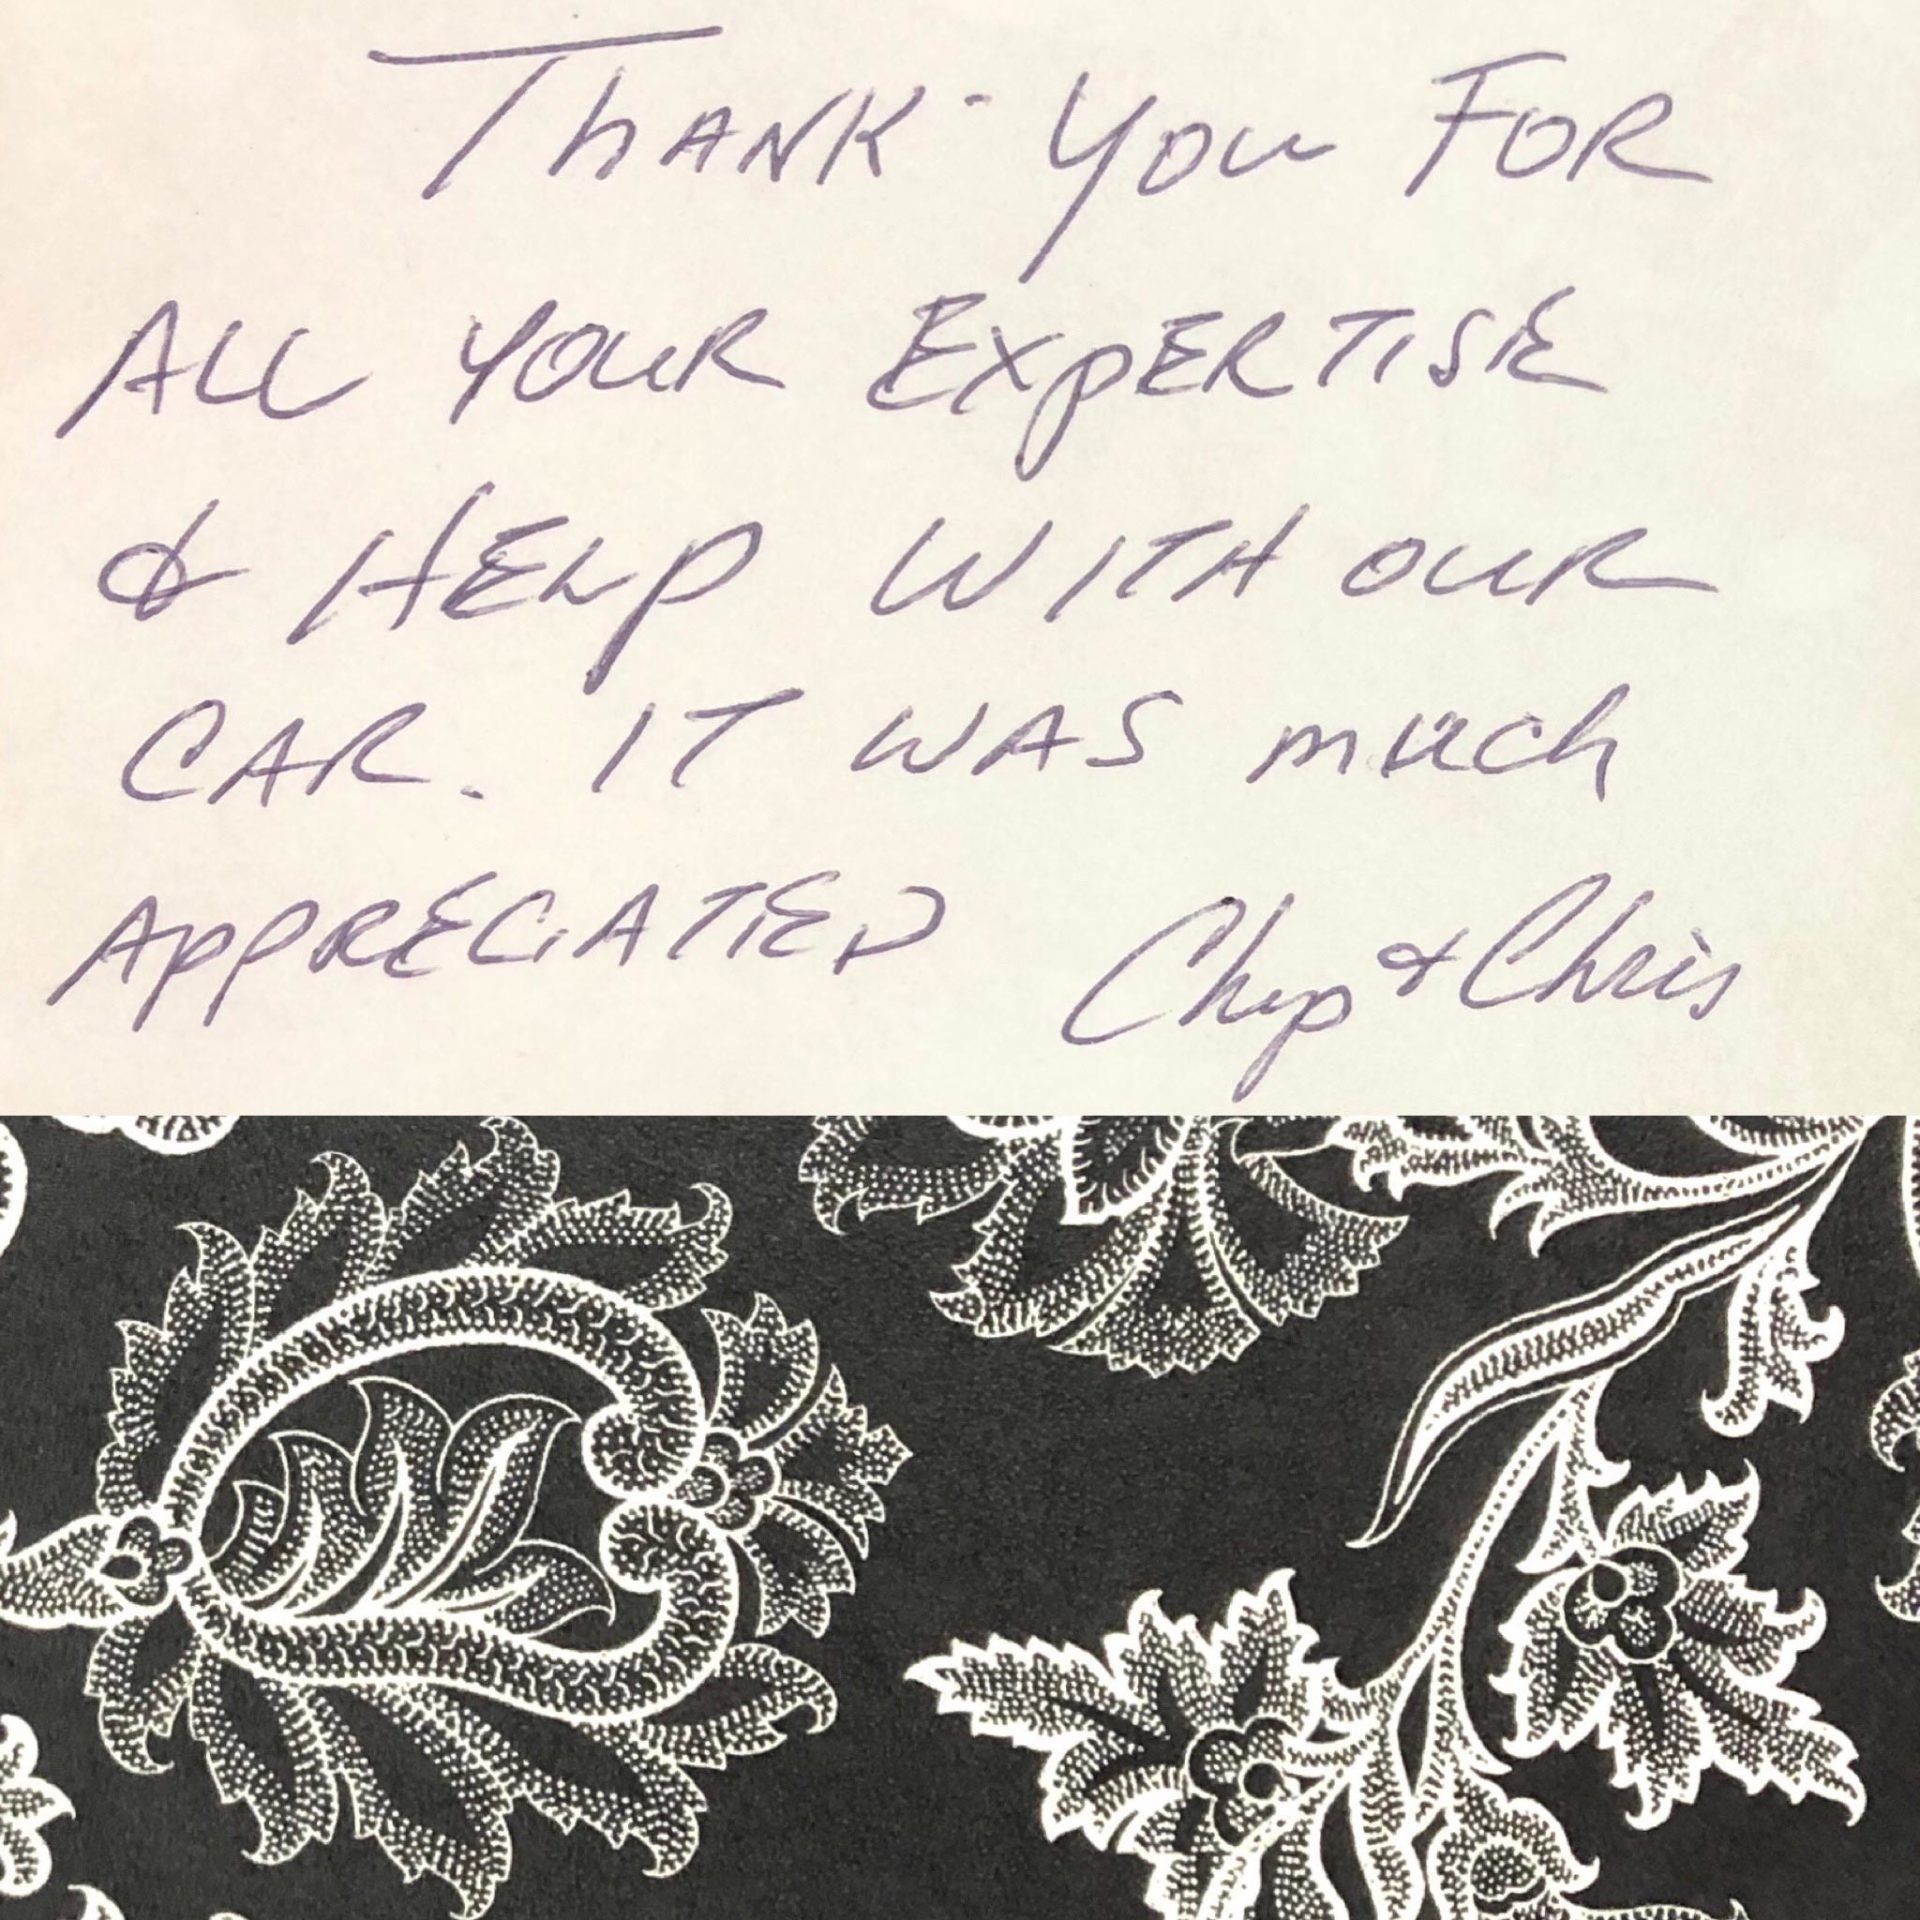 THANK-YOU FOR
ALL YOUR EXPERTISE
& HELP WITH OUR
CAR. IT WAS much
APPRECIATED Chip & Chris